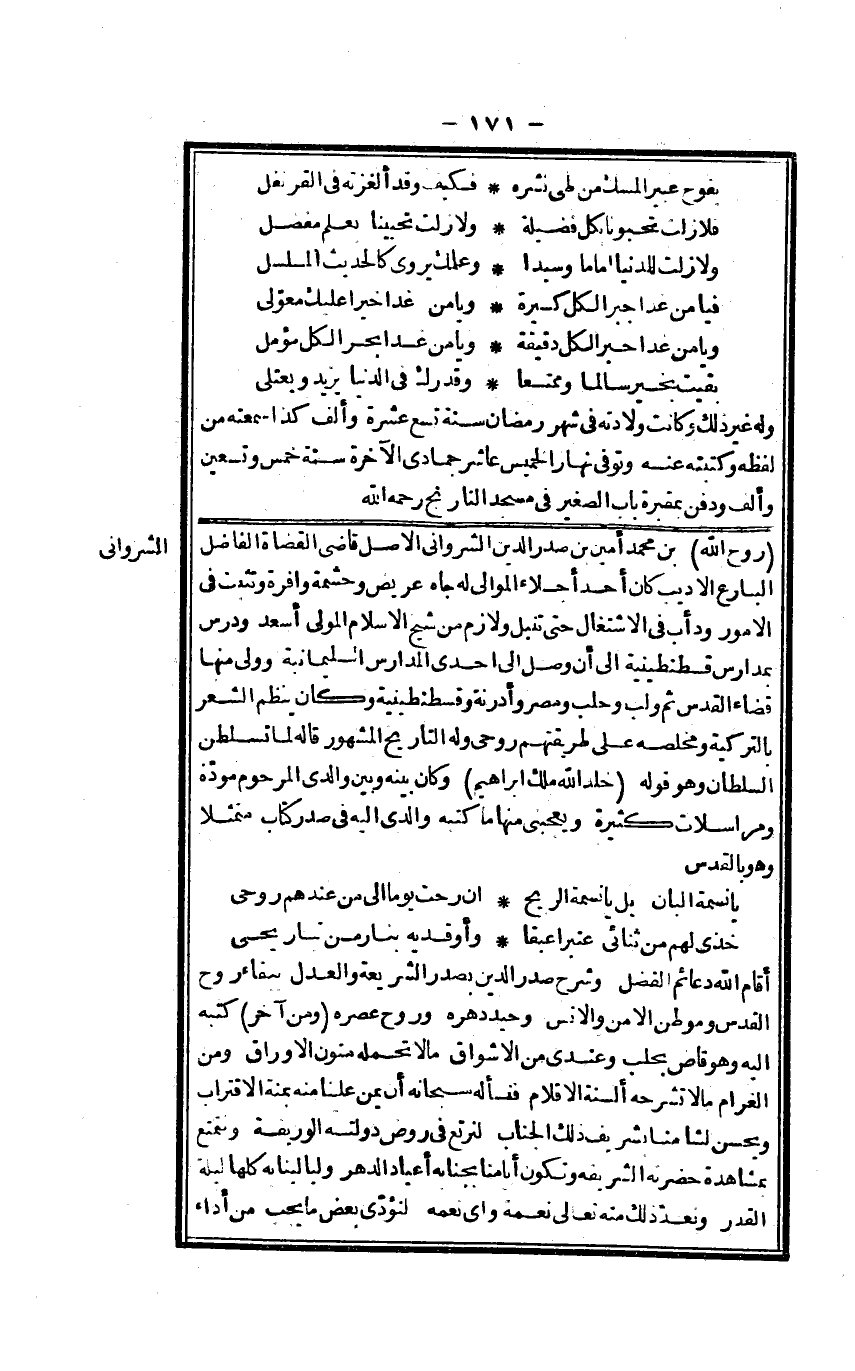 - ١٧١ -
يفوح عبير المسك من طى نشره * فكيف وقد ألغزته فى القرنفل
فلازلت تحبونا بكل فضيلة * ولازلت تحيينا بعلم مفصل
ولازلت للدنيا اماما وسيدا * وعلمك يروى كالحديث المسلسل
فيا من غدا جبرا لكل كسيرة * ويا من غدا خيرا عليك معوّلى
ويامن غدا حبرا لكل دقيقة * ويا من غدا بحرا لكل مؤمل
بقيت بخير سالما وممتعا * وقدرك فى الدنيا يزيد ويعتلى
وله غير ذلك وكانت ولادته فى شهر رمضان سنة تسع عشرة وألف كذا سمعته من
لفظه وكتبته عنه وتوفى نهار الخميس عاشر جمادى الآخرة سنة خمس وتسعين
وألف ودفن بمقبرة باب الصغير فى مسجد النارنج رحمه الله
(روح الله) بن محمد أمين بن صدر الدين الشروانى الاصل قاضى القضاة الفاضل
الشروانى
البارع الاديب كان أحد أجلاء الموالى له جاه عريض وحشمة وافرة وتثبت فى
الامور ودأب فى الاشتغال حتى تنبل ولازم من شيخ الاسلام المولى أسعد ودرس
بمدارس قسطنطينية الى أن وصل الى احدى المدارس السليمانية وولى منها
قضاء القدس ثم ولى وحلب ومصر وأدرنة وقسطنطينية وكان ينظم الشعر
بالتركية ومخلصه على طريقتهم روحى وله التاريخ المشهور قاله لما تسلطن
السلطان وهو قوله (خلد الله ملك ابراهيم) وكان بينه وبين والدى المرحوم مودّة
ومراسلات كثيرة ويعجبنى منها ما كتبه والدى اليه فى صدر كتاب متمثلا
وهو بالقدس
يا نسمة البان بل يا نسمة الريح * ان رحت يوما الى من عندهم روحى
خذى لهم من ثنائى عنبرا عبقا * وأوقديه بنار من تباريحى
أقام الله دعائم الفضل وشرح صدر الدين بصدر الشريعة والعدل ببقاء روح
القدس وموطن الامن والانس وحيد دهره وروح عصره (ومن آخر) كتبه
اليه وهو قاض بحلب وعندى من الاشواق مالا تحمله متون الاوراق ومن
الغرام مالا تشرحه ألسنة الاقلام فنسأله سبحانه أن يمن علينا منه بمنة الاقتراب
ويحسن لنا منا بشريف ذلك الجناب لنرتع فى روض دولته الوريفة ونتمتع
بمشاهدة حضرته الشريفه وتكون أيامنا بجنابه أعياد الدهر وليالينا به كلها ليلة
القدر ونعدّ ذلك منه تعالى نعمة واى نعمه لنؤدّى بعض ما يجب من أداء